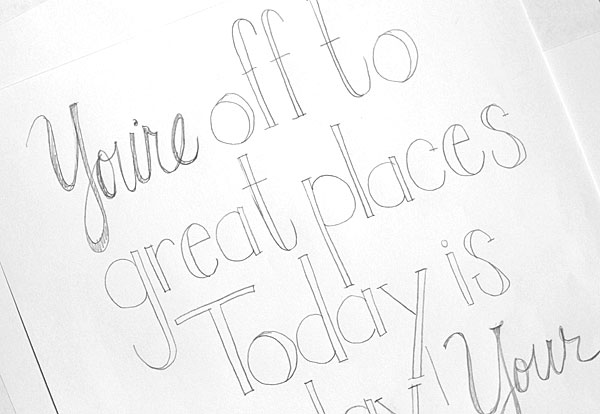 You're off to
great places
Today is
Your